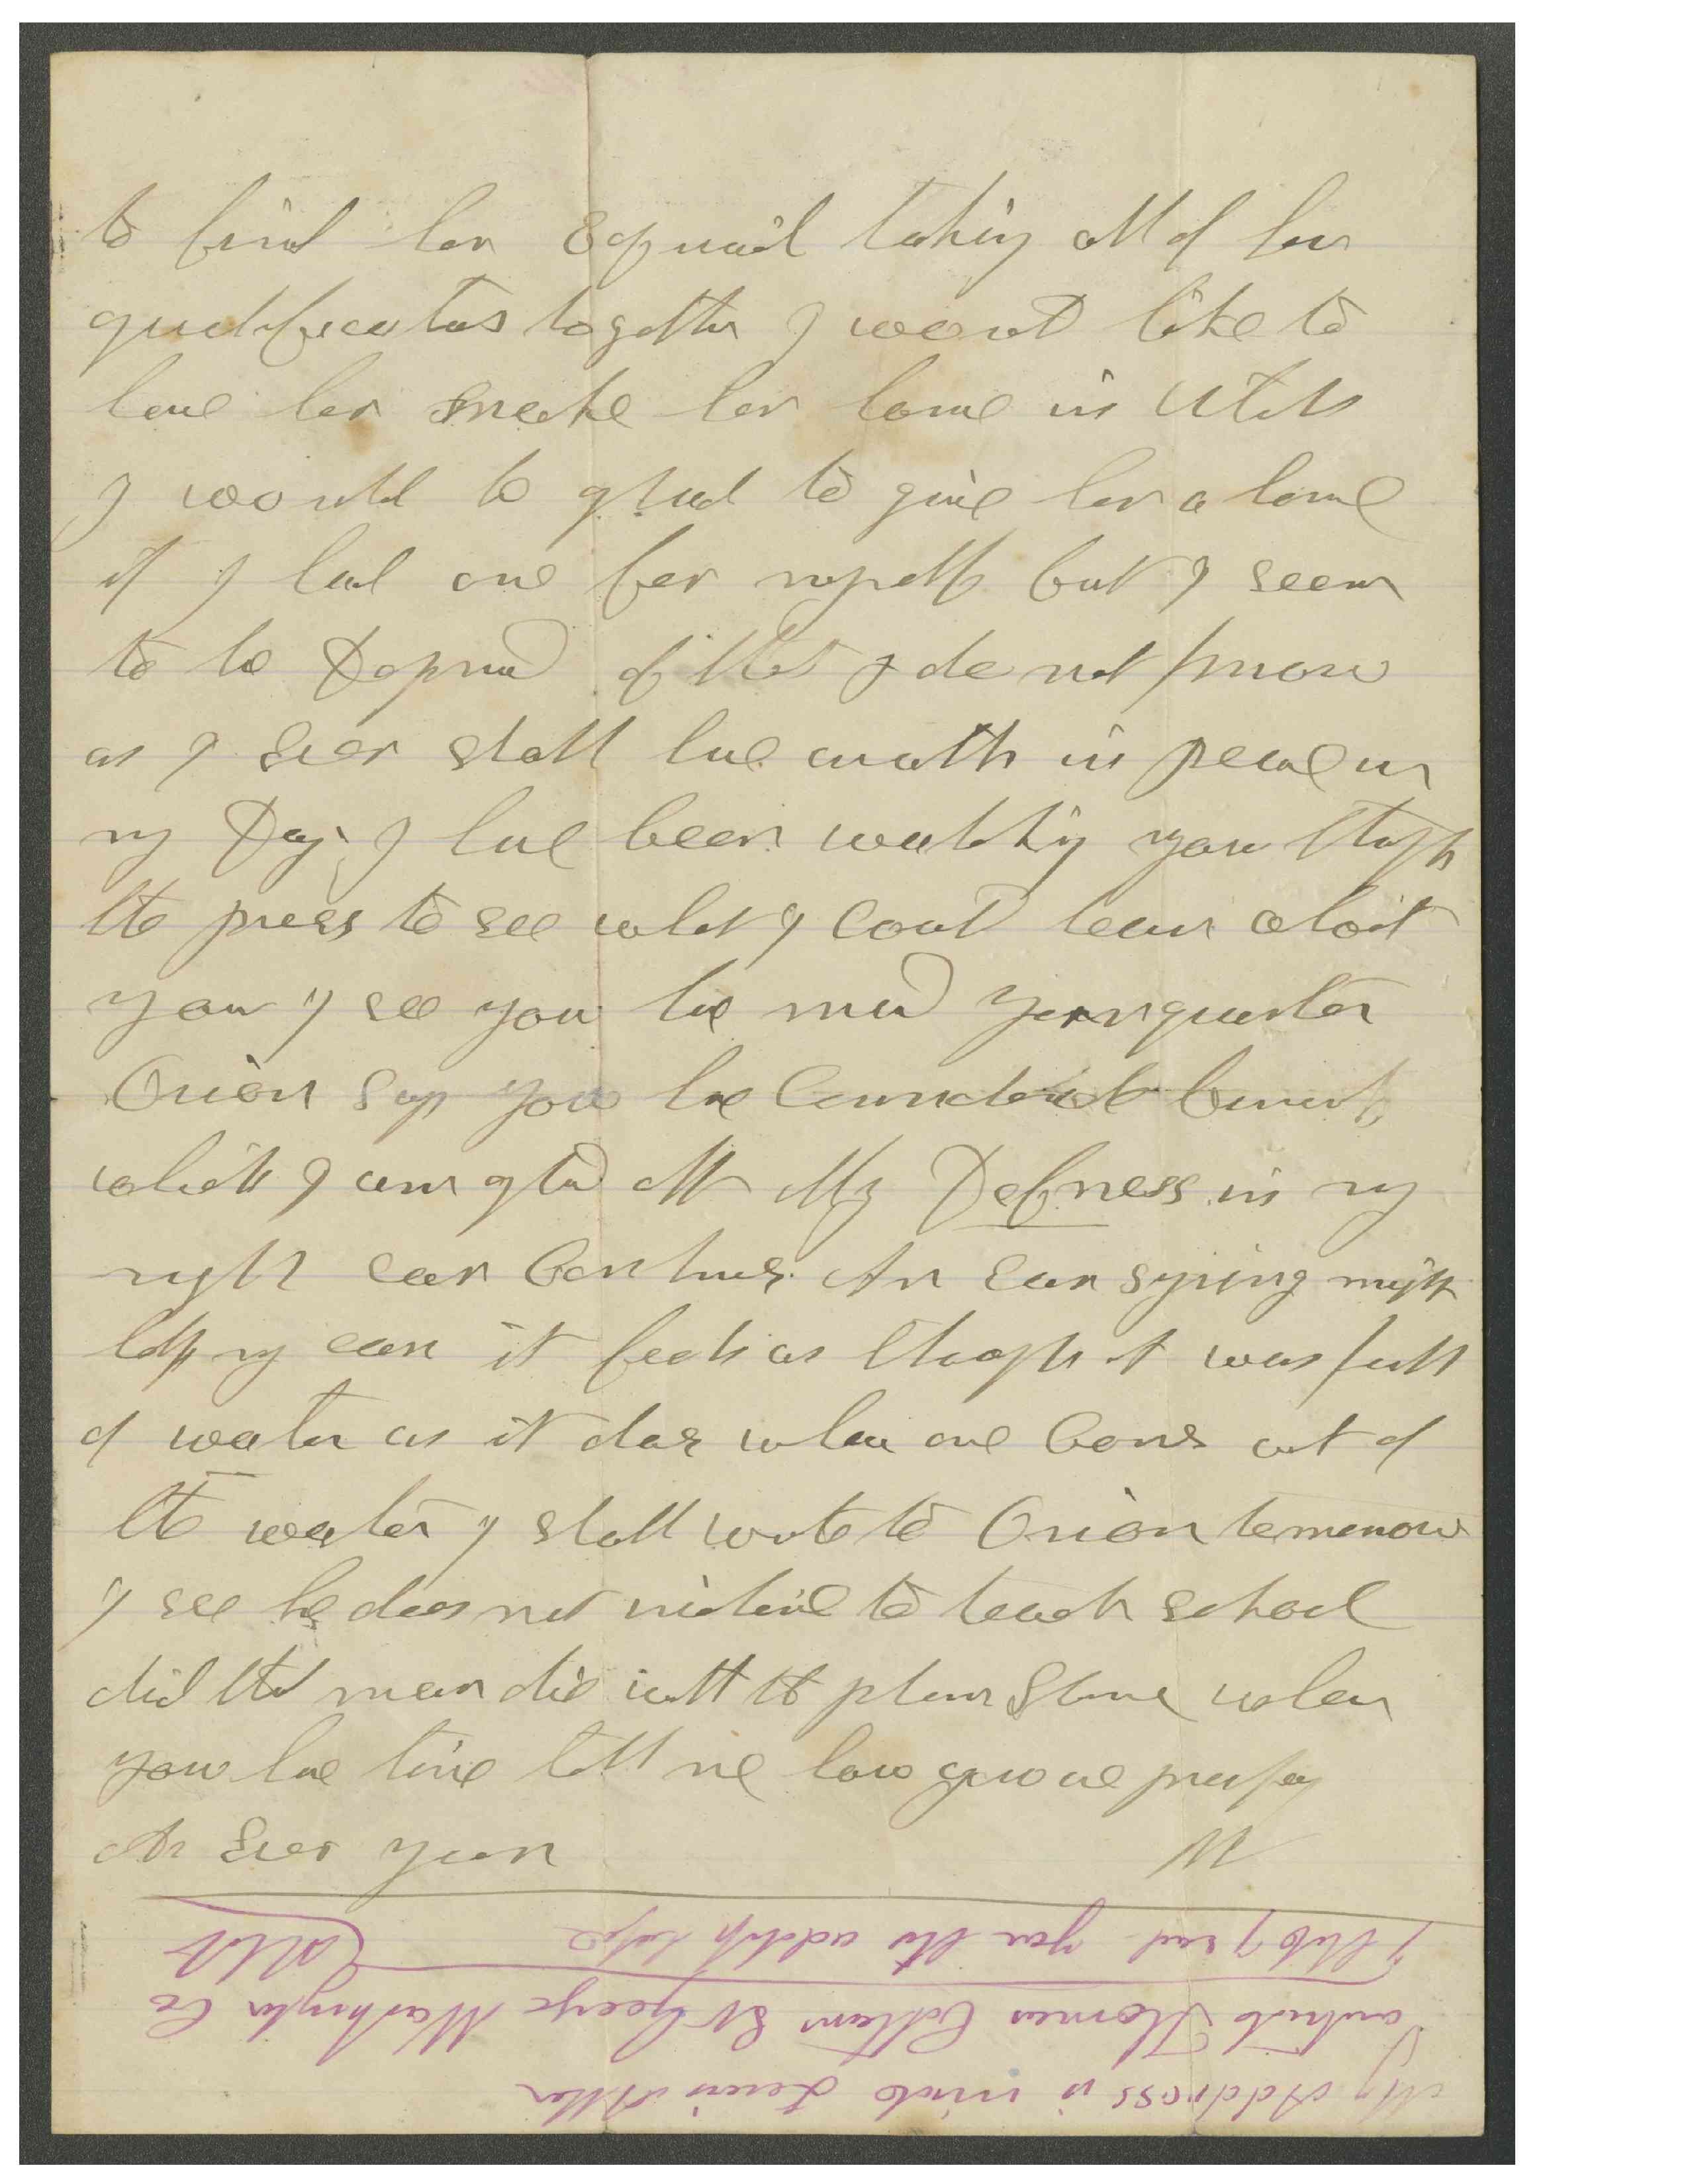 to find her Equail taking all of her
qualifications together I want like to
have her make her home in Utah
I would be glad to give her a home
if I had one for myself but I seem
to be Deprived of that I do not know
as I Ever shall live another in peace in
my Day I have been watching you through
the press to see what I could learn about
you I see you have moved your quarters
Orion says you have business
which I am glad of My Defness in my
right ear continues An ear syring might
help my ear it feels as though it was full
of water as it does when one comes out of
the water I shall write to Orion tomorrow
I see he does not incline to teach school
did that man die with the plum Stone when
you have time tell me how you are prospering
As Ever your W
My Address is under Lewis Allen
outside Thomas Cottam St George Washington Co
I think I sent you this address before Utah